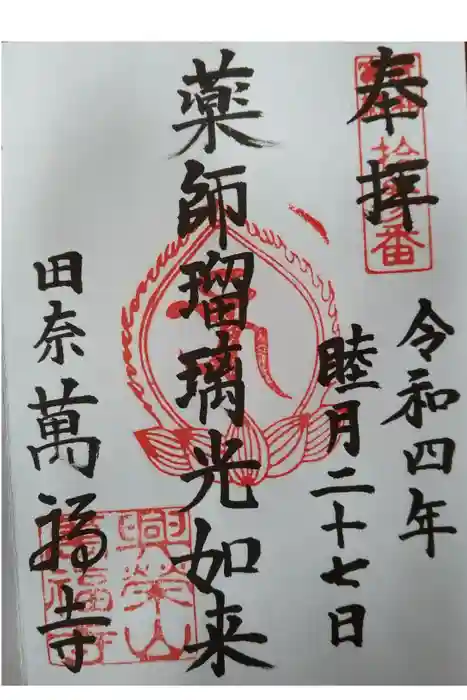 奉拝
令和四年
睦月二十七日
薬師瑠璃光如来
田奈萬福寺
興栄山
萬福寺